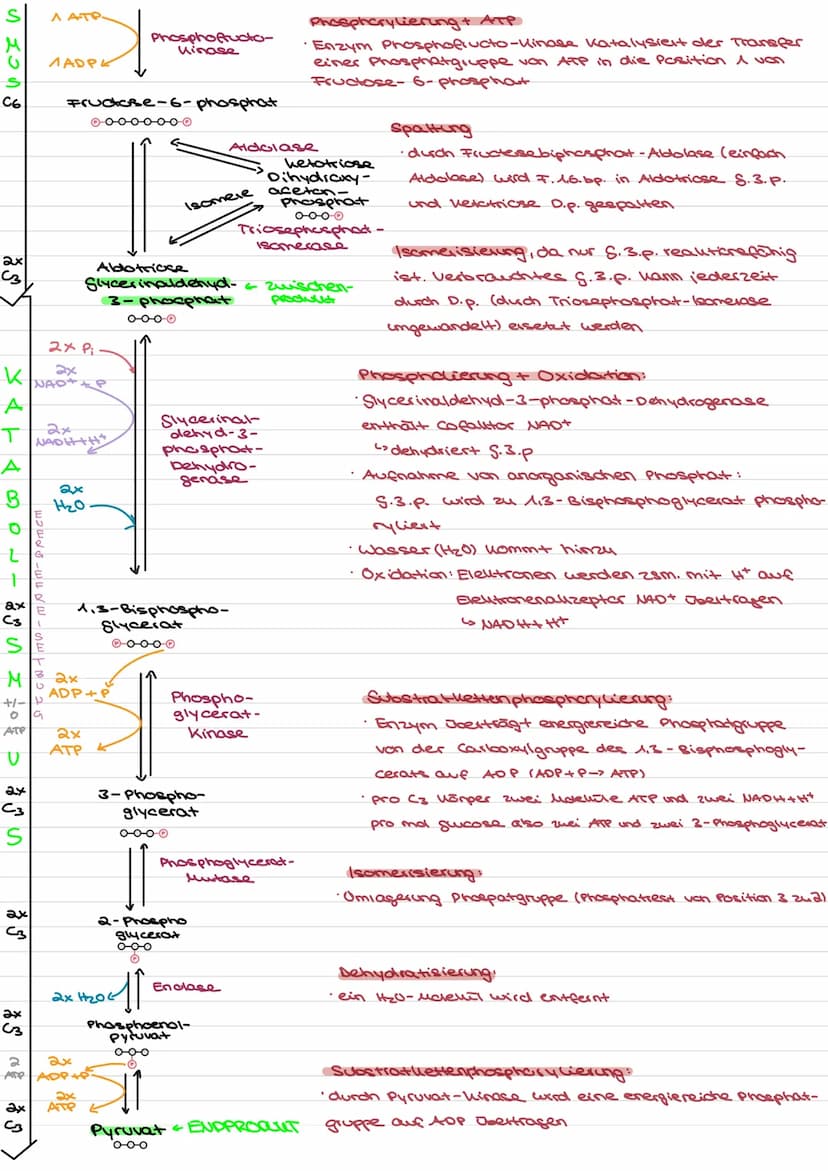 S
M
U
S
C6
1 ATP
1 ADP
Phosphofructo-
Kinase
Phosphorylierung + ATP
· Enzym Phosphofructo-Kinase katalysiert der Transfer
einer Phosphatgruppe von ATP in die Position 1 von
Fructose-6-phosphat
Fructose-6-phosphat
P P
Aldolase
Ketotriose
Dihydroxy-
aceton-
Phosphat
P
Isomere
Triosephosphat-
isomerase
Spaltung
· durch Fructosebiphosphat-Aldolase (einfach
Aldolase) wird F.1.6.bp. in Aldotriose G.3.p.
und Ketotriose D.p. gespalten
2x
C3
Aldotriose
Glycerinaldehyd-
3-phosphat
← Zwischen-
produkt
P
Isomerisierung, da nur G.3.p. reaktionsfähig
ist. Verbrauchtes G.3.p. kann jederzeit
durch D.p. (durch Triosephosphat-Isomerase
umgewandelt) ersetzt werden
K
A
T
A
B
O
L
I
S
M
U
S
ENERGIEFREISETZUNG
2x Pi
2x
NAD+ + P
2x
NADH+H+
2x
H2O
Glycerinal-
dehyd-3-
phosphat-
Dehydro-
genase
Phospholierung + Oxidation:
· Glycerinaldehyd-3-phosphat-Dehydrogenase
enthält Cofaktor NAD+
↳ dehydriert G.3.p
· Aufnahme von anorganischen Phosphat:
G.3.p. wird zu 1,3-Bisphosphoglycerat phospho-
ryliert
· Wasser (H2O) kommt hinzu
· Oxidation: Elektronen werden zsm. mit H+ auf
Elektronenakzeptor NAD+ übertragen
↳ NADH+H+
2x
C3
1,3-Bisphospho-
glycerat
P P
+/-
0
ATP
2x
ADP+P
2x
ATP
Phospho-
glycerat-
Kinase
Substratkettenphosphorylierung:
· Enzym überträgt energiereiche Phosphatgruppe
von der Carboxylgruppe des 1,3-Bisphosphogly-
cerats auf ADP (ADP+P → ATP)
· pro C3 Körper zwei Moleküle ATP und zwei NADH+H+
pro mol Glucose also zwei ATP und zwei 3-Phosphoglycerat
2x
C3
3-Phospho-
glycerat
P
Phosphoglycerat-
Mutase
Isomerisierung:
· Umlagerung Phospatgruppe (Phosphatrest von Position 3 zu 2)
2x
C3
2-Phospho
glycerat
P
2x H2O
Enolase
Dehydratisierung:
· ein H2O-Molekül wird entfernt
2x
C3
Phosphoenol-
pyruvat
P
2
ATP
2x
ADP+P
2x
ATP
Substratkettenphosphorylierung:
· durch Pyruvat-Kinase wird eine energiereiche Phosphat-
gruppe auf ADP übertragen
2x
C3
Pyruvat ← ENDPRODUKT